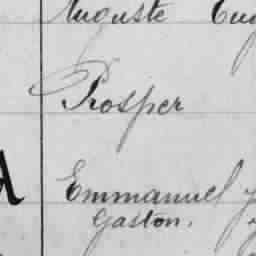 Auguste
Prosper
Emmanuel
Gaston.